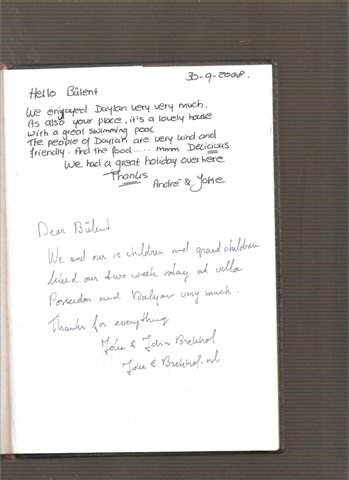 30-9-2008.
Hello Bülent
We engoyed Daylan very very much.
As also your place, it's a lovely house
with a great swimming pool
The people of Daylan are very kind and
friendly. And the food..... mmm Delicious
We had a great holiday over here
Thanks
André & Joke
Dear Bülent
We and our is children and grandchildren
liked our two week stay at villa
Poseidon and Dalyan very much.
Thanks for everything
Joke & John
Joke